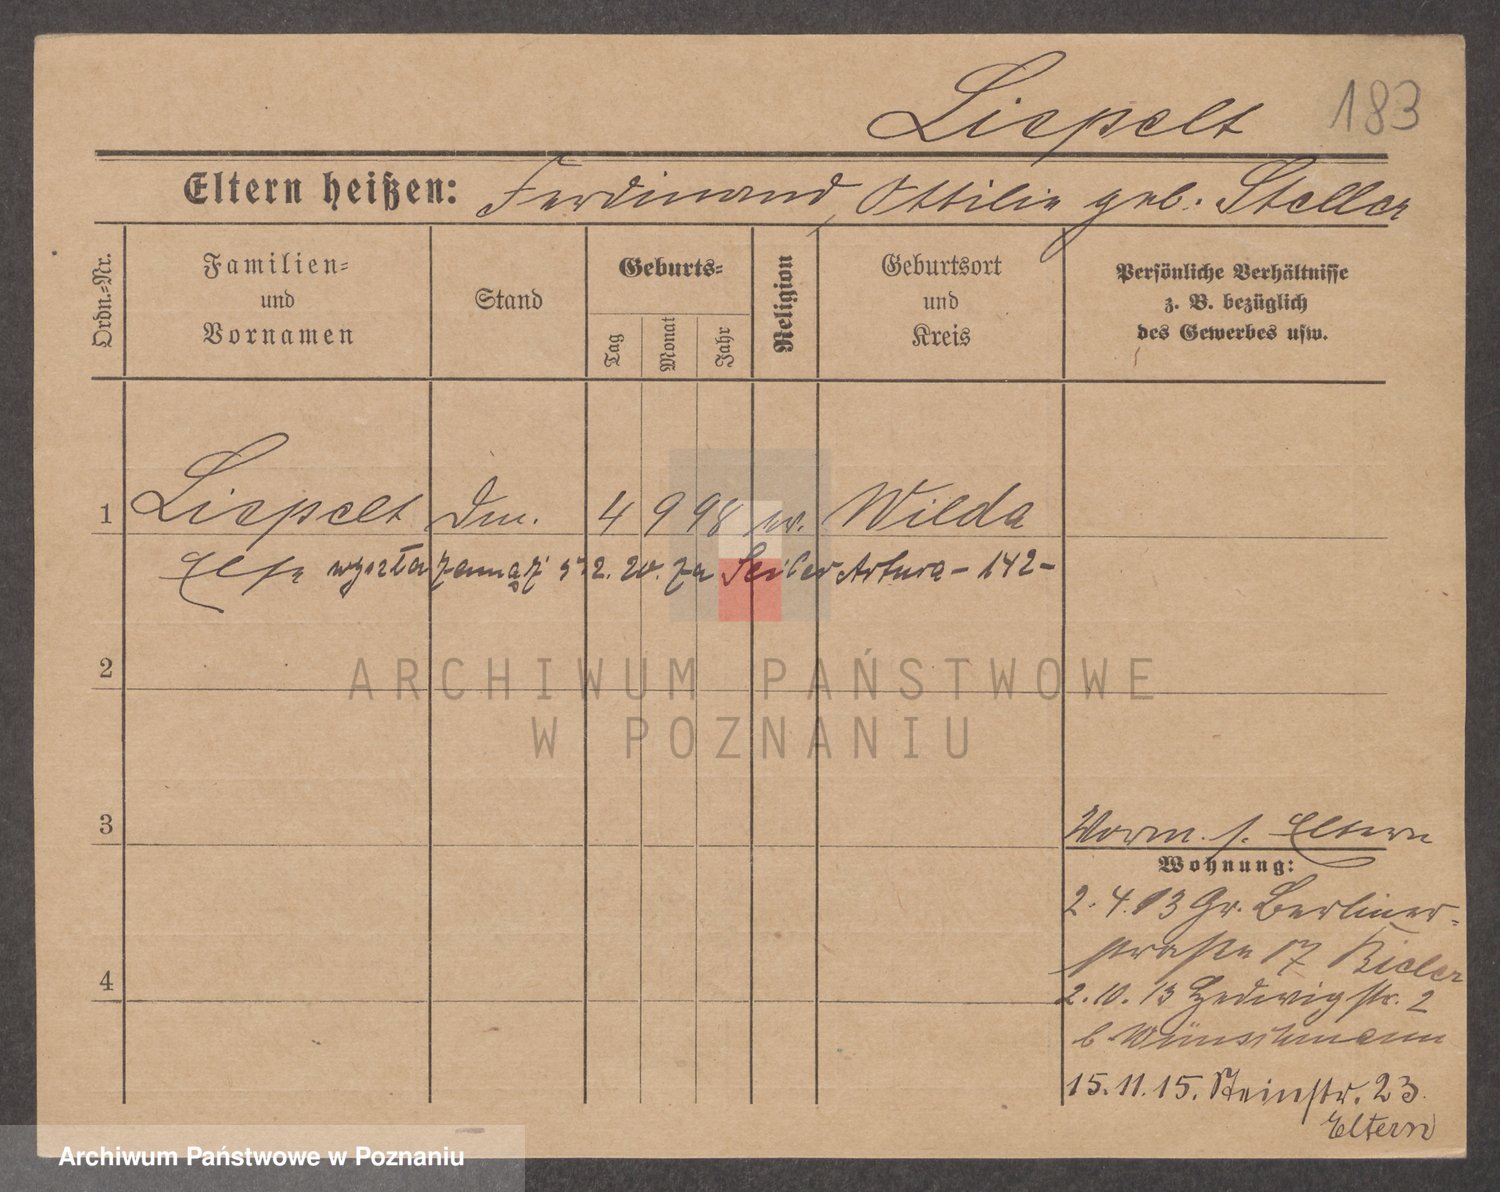 Liepelt 183
Eltern heißen: Ferdinand, Ottilie geb. Steller
Ordn.=Nr.
Familien=
und
Vornamen
Stand
Geburts=
Tag
Monat
Jahr
Religion
Geburtsort
und
Kreis
Persönliche Verhältnisse
z. B. bezüglich
des Gewerbes usw.
1 Liepelt 4 9 98 ev. Wilda
Else wyszła zamąż 2. 20. za Seiler Artura - 142 -
2
ARCHIWUM PAŃSTWOWE
W POZNANIU
3
Worm. s. Eltern
Wohnung:
2. 4. 13 Gr. Berliner=
straße 17
4
2. 10. 13 Hedwigstr. 2
b Wünschmann
15. 11. 15. Steinstr. 23.
Eltern
Archiwum Państwowe w Poznaniu